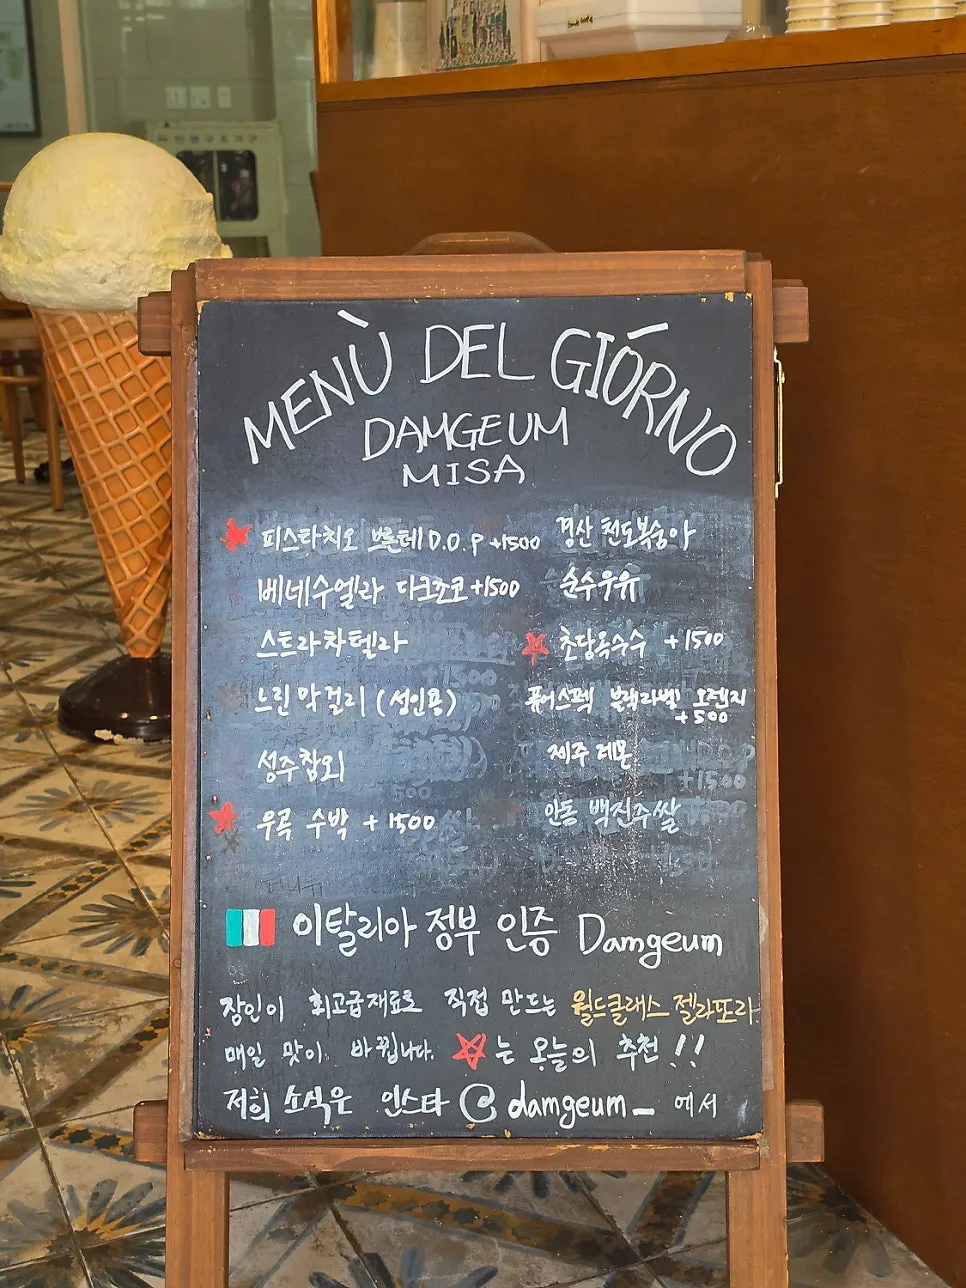 MENÙ DEL GIÓRNO
DAMGEUM
MISA
피스타치오 브론테 D.O.P +1500
베네수엘라 다크초코 +1500
스트라차텔라
느린막걸리 (성인용)
성주참외
우곡 수박 + 1500
경산 천도복숭아
순수우유
초당옥수수 +1500
퓨어스펙 블랙라벨 오렌지
+500
제주 레몬
안동 백진주쌀
이탈리아 정부 인증 Damgeum
장인이 최고급재료로 직접 만드는 월드클래스 젤라또라
매일 맛이 바뀝니다. ☆는 오늘의 추천!!
저희 소식은 인스타 @damgeum_ 에서